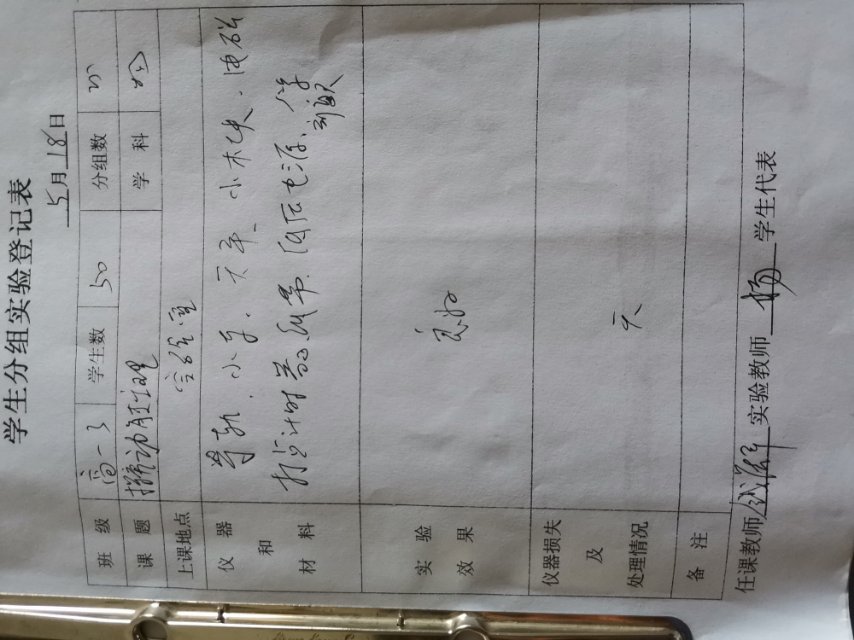 学生分组实验登记表
5月18日
班级 高一3 学生数 50 分组数 25
课题 探究动能定理 学科 物
上课地点 实验室
仪器和材料 导轨、小车、天平、小木块、电磁
打点计时器、纸带、低压电源、学
刻度尺
实验效果 良好
仪器损失及处理情况 无
备注
任课教师 实验教师 杨 学生代表